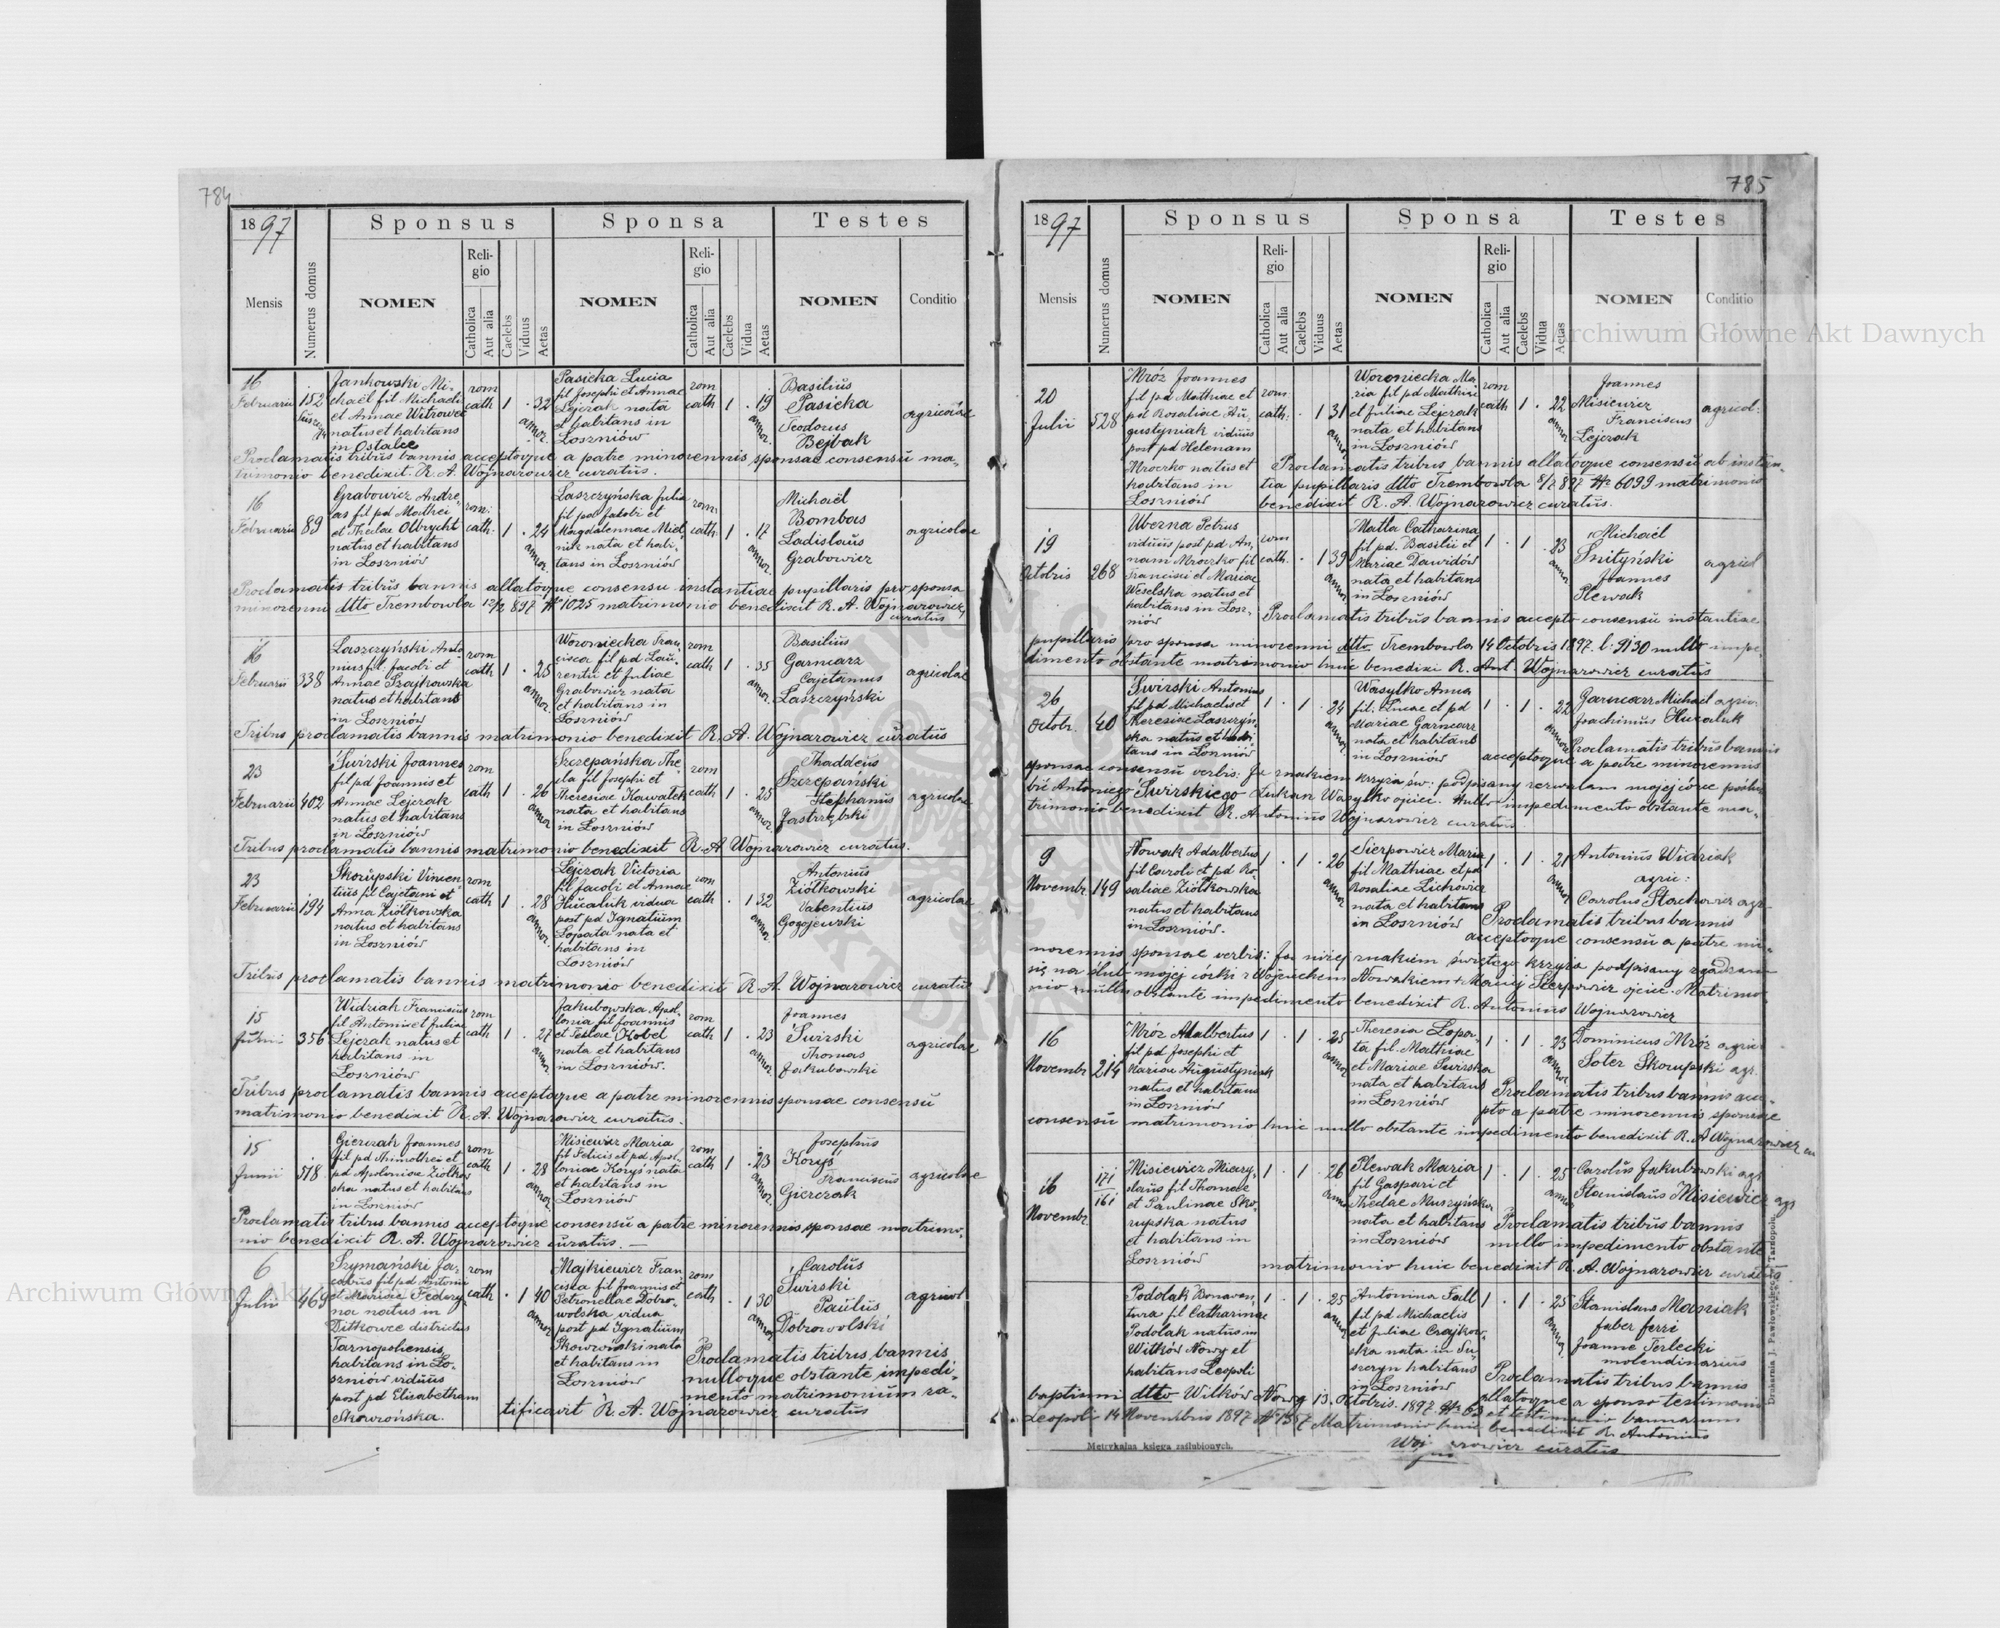 784
1897
Sponsus
Sponsa
Testes
Mensis
Numerus domus
NOMEN
Religio
Catholica
Aut alia
Caelebs
Viduus
Aetas
NOMEN
Religio
Catholica
Aut alia
Caelebs
Vidua
Aetas
NOMEN
Conditio
16
Februarii
152
Jankowski Mi-
chaël fil Michaeli
et Annae Witrowa
natus et habitans
in Ostalce
rom
cath
1 . 32
annor.
Pasicka Lucia
fil Josephi et Annae
Lejczak nata
et habitans in
Loszniów
rom
cath
1 . 19
annor.
Basilius
Pasicka
Teodorus
Bejbak
agricolae
Proclamatis tribus bannis acceptoque a patre minorennis sponsae consensu ma-
trimonio benedixit R. A. Wojnarowicz curatus.
16
Februarii
89
Grabowicz Andre-
as fil pd Mathei
et Theclae Olbrycht
natus et habitans
in Loszniów
rom:
cath:
1 . 24
annor.
Laszczyńska Julia
fil pd Jakobi et
Magdalennae Miel
nik nata et habi-
tans in Loszniów
rom:
cath:
1 . 17
annor.
Michaël
Bombas
Ladislaus
Grabowicz
agricolae
Proclamatis tribus bannis allatoque consensu instantiae pupillaris pro sponsa
minorenni dtto Trembowla 12/2 897 № 1025 matrimonio benedixit R. A. Wojnarowicz
curatus
16
Februarii
338
Laszczyński Anto
nius fil: Jacobi et
Annae Szajkowska
natus et habitans
in Loszniów
rom
cath
1 . 25
annor.
Woroniecka Fran-
cisca fil pd Lau-
rentii et Juliae
Grabowicz nata
et habitans in
Loszniów
rom
cath
1 . 35
annor.
Basilius
Garncarz
Cajetanus
Laszczyński
agricolae
Tribus proclamatis bannis matrimonio benedixit R. A. Wojnarowicz curatus
23
Februarii
402
Świrski Joannes
fil pd Joannis et
Annae Lejczak
natus et habitans
in Loszniów
rom
cath
1 . 26
annor.
Szczepańska The
cla fil Josephi et
Theresiae Kawałek
nata et habitans
in Loszniów
rom
cath
1 . 25
annor.
Thaddeus
Szczepański
Stephanus
Jastrzębski
agricolae
Tribus proclamatis bannis matrimonio benedixit R. A Wojnarowicz curatus.
23
Februarii
194
Skorupski Vincen
tius fil Cajetani et
Anna Ziółkowska
natus et habitans
in Loszniów
rom
cath
1 . 28
annor.
Lejczak Victoria
fil Jacobi et Annae
Hucaluk vidua
post pd Ignatium
Łopata nata et
habitans in
Loszniów
rom
cath
. 1 32
annor.
Antonius
Ziółkowski
Valentius
Gogojewski
agricolae
Tribus proclamatis bannis matrimonio benedixit R. A. Wojnarowicz curatus
15
Junii
356
Widziak Franciscus
fil Antonii et Juliae
Lejczak natus et
habitans in
Loszniów
rom
cath
1 . 27
annor.
Jakubowska Apol
lonia fil Joannis
et Teclae Kobel
nata et habitans
in Loszniów.
rom
cath
1 . 23
annor.
Joannes
Świrski
Thomas
Jakubowski
agricolae
Tribus proclamatis bannis acceptoque a patre minorennis sponsae consensu
matrimonio benedixit R. A. Wojnarowicz curatus.
15
Junii
518
Gierczak Joannes
fil pd Thimothei et
pd Apoloniae Ziółkow
ska natus et habitans
in Loszniów
rom
cath
1 . 28
annor.
Misiewicz Maria
fil Felicis et pd Apol-
loniae Koryś nata
et habitans in
Loszniów
rom
cath
1 . 23
annor.
Josephus
Koryś
Franciscus
Gierczak
agricolae
Proclamatis tribus bannis acceptoque consensu a patre minorennis sponsae matrimo-
nio benedixit R. A. Wojnarowicz curatus. —
6
Julii
469
Szymański Ja-
cobus fil pd Antonii
et Mariae Fedory-
na natus in
Ditkowce districtus
Tarnopoliensis
habitans in Lo-
szniów viduus
post pd Elisabetham
Skowrońska.
rom
cath
. 1 40
annor.
Majkiewicz Fran
cisca fil Joannis et
Petronellae Dobro-
wolska vidua
post pd Ignatium
Skowroński nata
et habitans in
Loszniów
rom
cath
. 1 30
annor.
Carolus
Świrski
Paulus
Dobrowolski
agricol
Proclamatis tribus bannis
nulloque obstante impedi-
mento matrimonium ra-
tificavit R. A. Wojnarowicz curatus
785
1897
Sponsus
Sponsa
Testes
Mensis
Numerus domus
NOMEN
Religio
Catholica
Aut alia
Caelebs
Viduus
Aetas
NOMEN
Religio
Catholica
Aut alia
Caelebs
Vidua
Aetas
NOMEN
Conditio
20
Julii
528
Mróz Joannes
fil pd Mathiae et
pd Rosaliae Au-
gustyniak viduus
post pd Helenam
Mroczko natus et
habitans in
Loszniów
rom
cath.
. 1 31
annor
Woroniecka Ma-
ria fil pd Mathiae
et Juliae Lejczak
nata et habitans
in Loszniów
rom
cath
1 . 22
annor
Joannes
Misiewicz
Franciscus
Lejczak
agricol:
Proclamatis tribus bannis allatoque consensu ab instan-
tia pupillaris dtto Trembowla 8/7 897 № 6099 matrimonio
benedixit R. A. Wojnarowicz curatus.
19
Octobris
268
Uberna Petrus
viduus post pd An-
nam Mroczko fil
Francisci et Mariae
Weselska natus et
habitans in Losz-
niów
rom
cath.
. 1 39
annor
Matla Catharina
fil pd. Basilii et
Mariae Dawidów
nata et habitans
in Loszniów
1 . 1 . 23
annor
Michaël
Snityński
Joannes
Plewak
agricol
Proclamatis tribus bannis accepto consensu instantiae
pupillaris pro sponsa minorenni dtto Trembowla 14 Octobris 1897 l: 9130 nullo impe-
dimento obstante matrimonio huic benedixi R. Ant. Wojnarowicz curatus
26
Octobr.
40
Świrski Antonius
fil pd Michaelis et
Theresiae Laszczyń-
ska natus et habi-
tans in Loszniów
1 . 1 . 24
annor
Wasylko Anna
fil: Lucae et pd
Mariae Garncarz
nata et habitans
in Loszniów
1 . 1 . 22
annor
Garncarz Michael agric
Joachimus Hucaluk
Proclamatis tribus bannis
acceptoque a patre minorennis
sponsae consensu verbis: Ja znakiem krzyża św: podpisany zezwalam mojej córce poślu
bić Antoniego Świrskiego Łukan Wasylko ojciec. Nullo impedimento obstante ma-
trimonio benedixit R. Antonius Wojnarowicz curatus
9
Novembr
149
Nowak Adalbertus
fil Caroli et pd Ro-
saliae Ziółkowska
natus et habitans
in Loszniów.
1 . 1 . 26
annor
Sierpowicz Maria
fil Mathiae et pd
Rosaliae Lichowicz
nata et habitans
in Loszniów
1 . 1 . 21
annor
Antonius Widziak
agric:
Carolus Stachowicz agr
Proclamatis tribus bannis
acceptoque consensu a patre mi-
norennis sponsae verbis: Ja niżej znakiem świętego krzyża podpisany zgadzam
się na ślub mojej córki z Wojciechem Nowakiem + Maciej Sierpowicz ojciec. Matrimo-
nio nullo obstante impedimento benedixit R. Antonius Wojnarowicz
16
Novembr
214
Mróz Adalbertus
fil pd Josephi et
Mariae Augustyniak
natus et habitans
in Loszniów
1 . 1 . 25
annor
Theresia Łopa-
ta fil. Mathiae
et Mariae Świrska
nata et habitans
in Loszniów
1 . 1 . 23
annor
Dominicus Mróz agric
Soter Skorupski agr.
Proclamatis tribus bannis acce-
pto a patre minorennis sponsae
consensu matrimonio huic nullo obstante impedimento benedixit R. A Wojnarowicz cu
16
Novembr
171
161
Misiewicz Mieczy-
slaus fil Thomae
et Paulinae Sko-
rupska natus
et habitans in
Loszniów
1 . 1 . 26
annor
Plewak Maria
fil Gaspari et
Theclae Muszyńska
nata et habitans
in Loszniów
1 . 1 . 25
annor
Carolus Jakubowski agr
Stanislaus Misiewicz agr
Proclamatis tribus bannis
nullo impedimento obstante
matrimonio huic benedixit R. A. Wojnarowicz curatus
Podolak Bonaven-
tura fil Catharinae
Podolak natus in
Witków Nowy et
habitans Leopoli
1 . 1 . 25
annor
Antonina Fall
fil pd Michaelis
et Juliae Czajkow-
ska nata in Su-
szczyn habitans
in Loszniów
1 . 1 . 25
annor.
Stanislaus Maniak
faber ferri
Joanne Terlecki
molendinarius
Proclamatis tribus bannis
allatoque a sponso testimonio
baptismi dtto Witków Nowy 13. Octobris. 1897 № 63 et testimonio bannorum
Leopoli 14 Novembris 1897 № 1357 Matrimonio huic benedixit R. Antonius
Wojnarowicz curatus
Metrykalna księga zaślubionych.
Drukarnia J. Pawłowskiego w Tarnopolu.
Archiwum Główne Akt Dawnych
Archiwum Główne Akt Dawnych